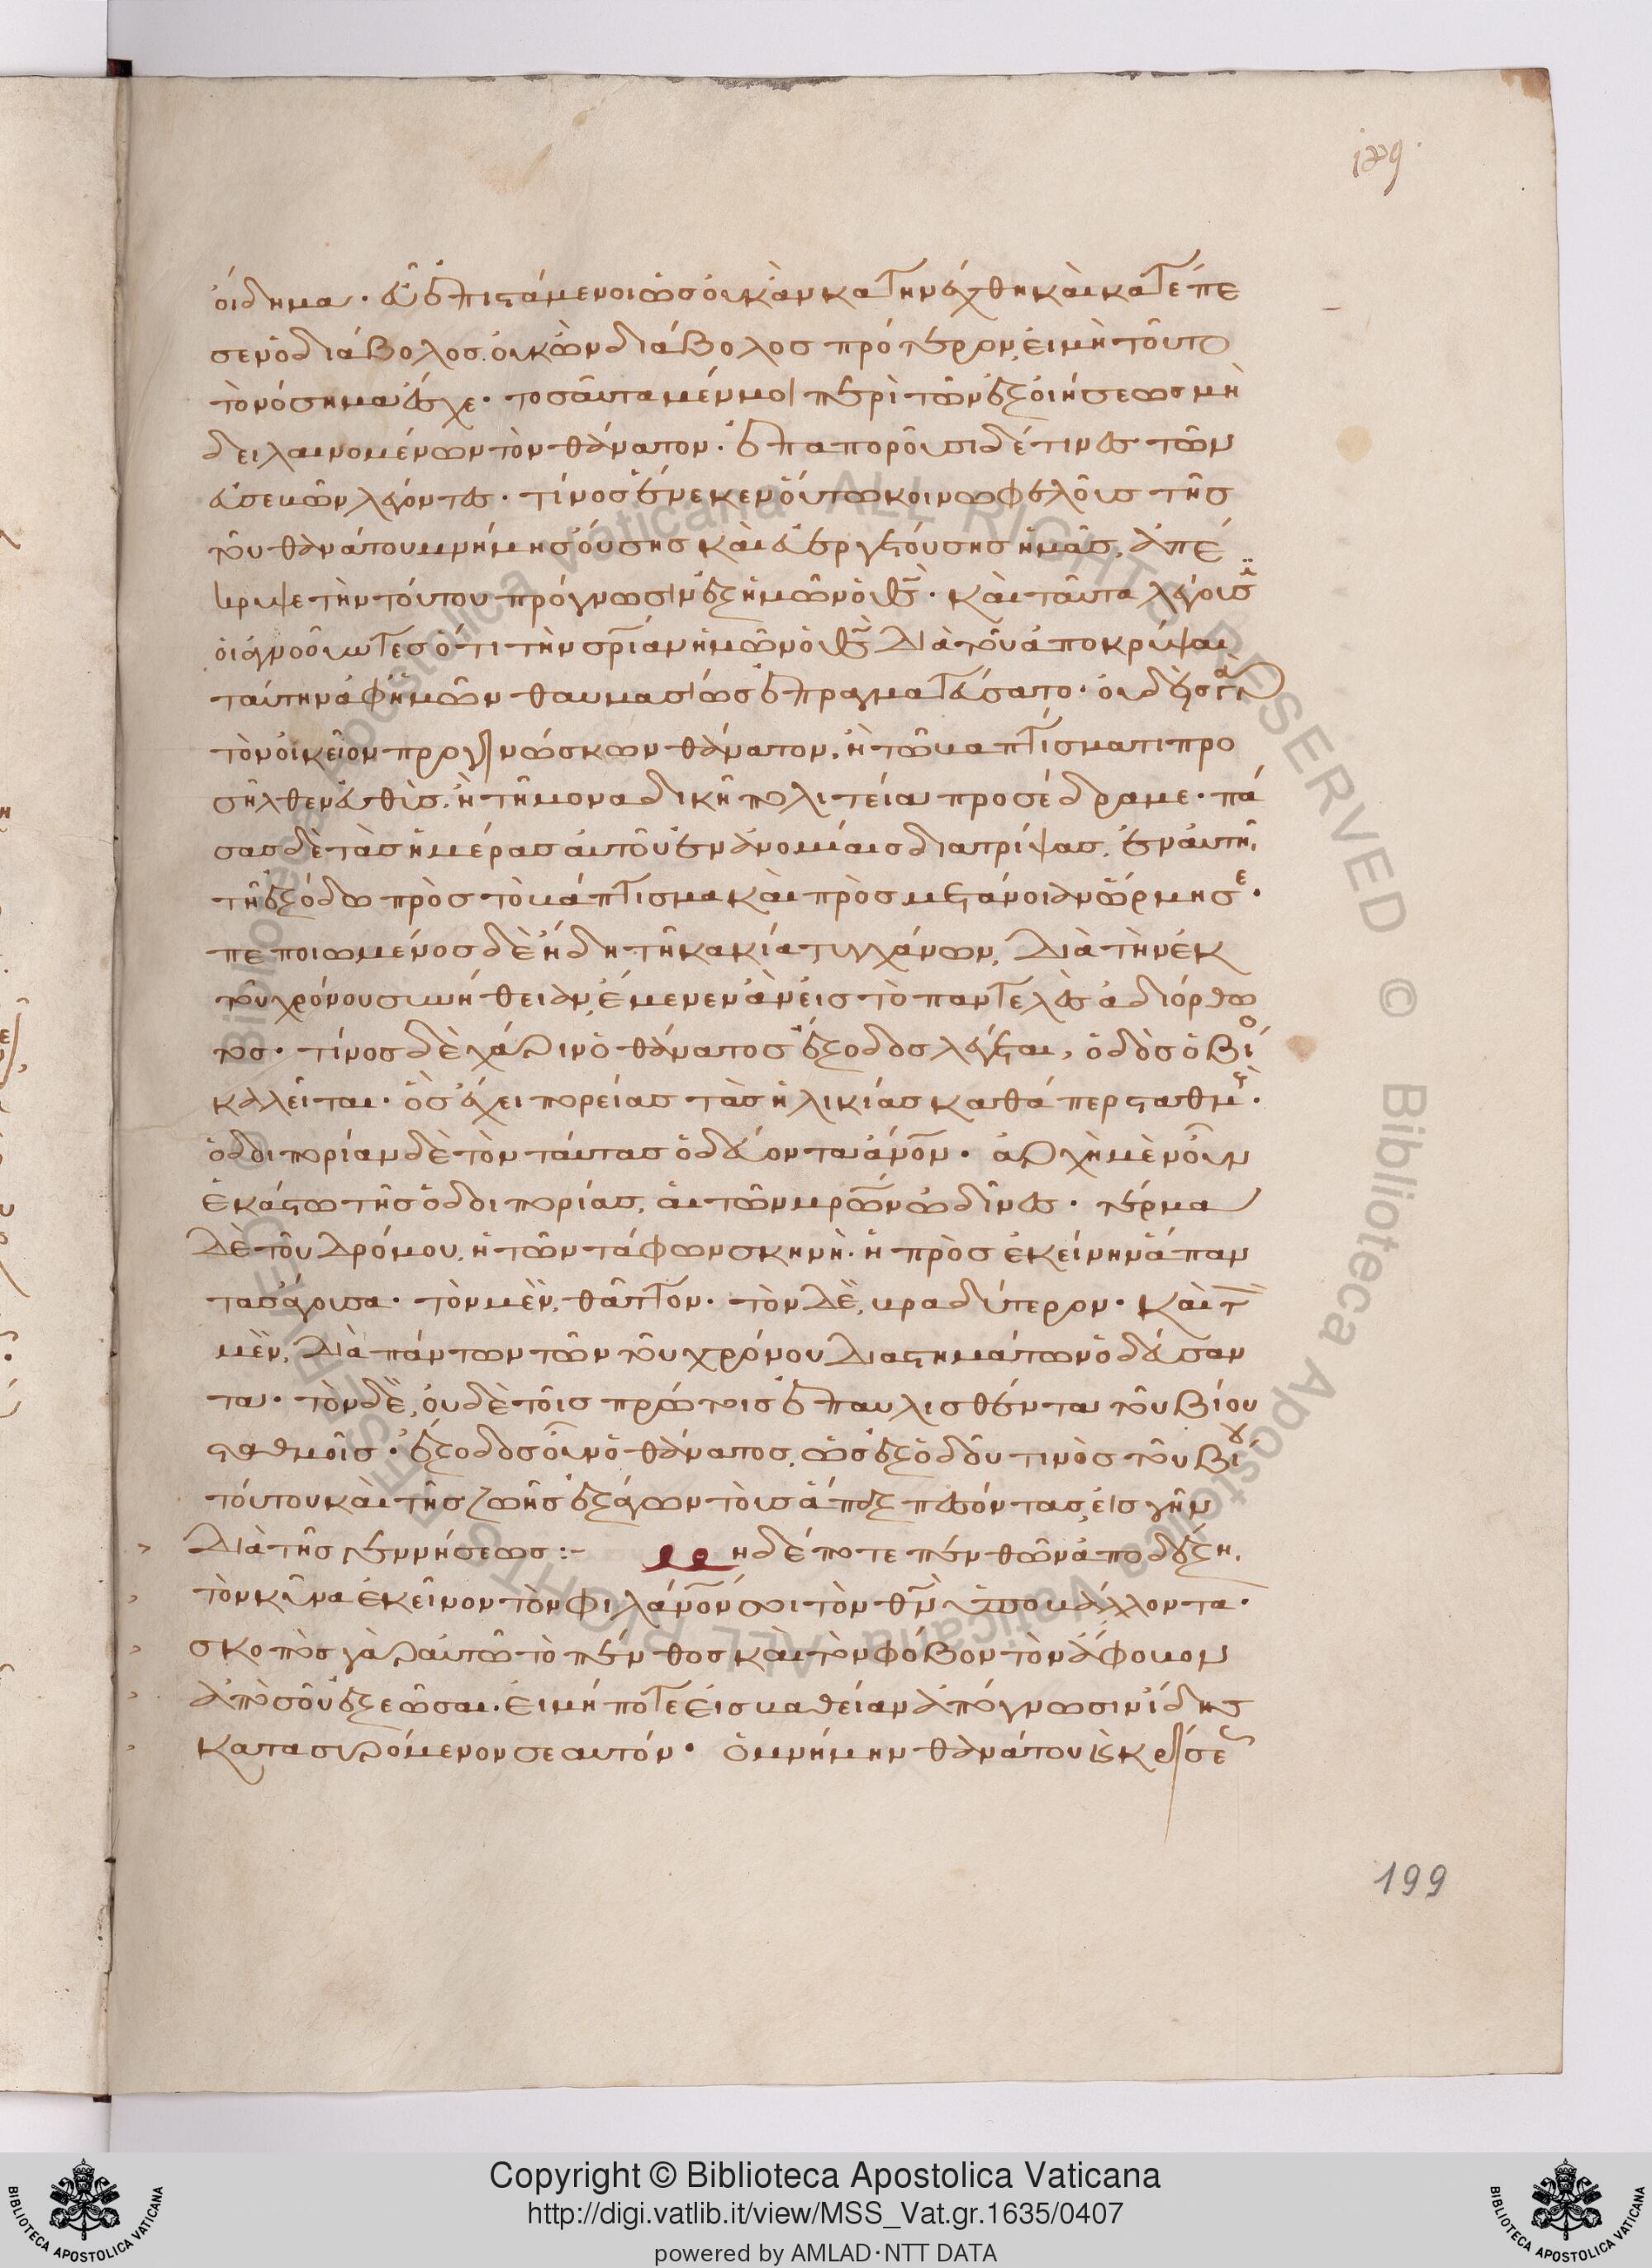 199
οἴδημα. εὖ ἐπιστάμενοι ὡς οὐκ ἂν κατηνέχθη καὶ κατέπε
σεν ὁ διάβολος. οὐκ ὢν διάβολος πρότερον, εἰ μὴ τοῦτο
τὸ νόσημα ἔσχε. τοσαῦτα μέν μοι περὶ τῶν ἐξ οἰήσεως μὴ
δειλαινομένων τὸν θάνατον. ἐπαποροῦσι δέ τινες τῶν
εὐσεβῶν λέγοντες. τίνος ἕνεκεν οὕτω κοινωφελοῦς τῆς
τοῦ θανάτου μνήμης οὔσης καὶ εὐεργετούσης ἡμᾶς, ἀπέ
κρυψε τὴν τούτου πρόγνωσιν ἐξ ἡμῶν ὁ θς. καὶ ταῦτα λέγουσιν
οἱ ἀγνοοῦντες ὅτι τὴν σρίαν ἡμῶν ὁ θς διὰ τοῦ ἀποκρύψαι
ταύτην ἀφ' ἡμῶν θαυμασίως ἐπραγματεύσατο. οὐδεὶς γὰρ
τὸν οἰκεῖον προγινώσκων θάνατον, ἢ τῶ βαπτίσματι προ
σῆλθεν εὐθὺς, ἢ τῆ μοναδικῆ πολιτεία προσέδραμε. πά
σας δὲ τὰς ἡμέρας αὐτοῦ ἐν ἀνομίαις διατρίψας, ἐν αὐτῆ
τῆ ἐξόδω πρὸς τὸ βάπτισμα καὶ πρὸς μετάνοιαν ὥρμησε.
πεποιωμένος δὲ ἤδη τῆ κακία τυγχάνων, διὰ τὴν ἐκ
τοῦ χρόνου συνήθειαν, ἔμενεν ἂν εἰς τὸ παντελὲς ἀδιόρθω
τος. τίνος δὲ χάριν ὁ θάνατος ἔξοδος λέγεται, ὁδὸς ὁ βίος
καλεῖται. ὃς ἔχει πορείας τὰς ἡλικίας καθάπερ σταθμούς.
ὁδοιπορίαν δὲ τὸν ταύτας ὁδεύοντα ἄνον. ἀρχὴ μὲν οὖν
ἑκάστω τῆς ὁδοιπορίας, αἱ τῶν μρων ὠδῖνες. τέρμα
δὲ τοῦ δρόμου, ἡ τῶν τάφων σκηνὴ. ἡ πρὸς ἐκείνην ἅπαν
τας ἄγουσα. τὸν μὲν, θᾶττον. τὸν δὲ, βραδύτερον. καὶ τὸν
μὲν, διὰ πάντων τῶν τοῦ χρόνου διαστημάτων ὁδεύσαν
τα. τὸν δὲ, οὐδὲ τοῖς πρώτοις ἐπαυλισθέντα τοῦ βίου
σταθμοῖς. ἔξοδος οὖν ὁ θάνατος, ὡς ἐξ ὁδοῦ τινὸς τοῦ βίου
τούτου καὶ τῆς ζωῆς ἐξάγων τοὺς ἅπαξ πεσόντας, εἰς γῆν
διὰ τῆς γεννήσεως:- Μηδέποτε πενθῶν ἀποδέξη,
τὸν κύνα ἐκεῖνον τὸν φιλάνον σοι τὸν θν ὑποβάλλοντα.
σκοπὸς γὰρ αὐτῶ τὸ πένθος καὶ τὸν φόβον τὸν ἄφοβον
ἀπὸ σοῦ ἐξεῶσαι. εἰ μήποτε εἰς βαθεῖαν ἀπόγνωσιν ἴδης
κατασυρόμενον σεαυτόν. ὁ μνήμην θανάτου καὶ κρίσεως
199
Copyright © Biblioteca Apostolica Vaticana
http://digi.vatlib.it/view/MSS_Vat.gr.1635/0407
powered by AMLAD·NTT DATA